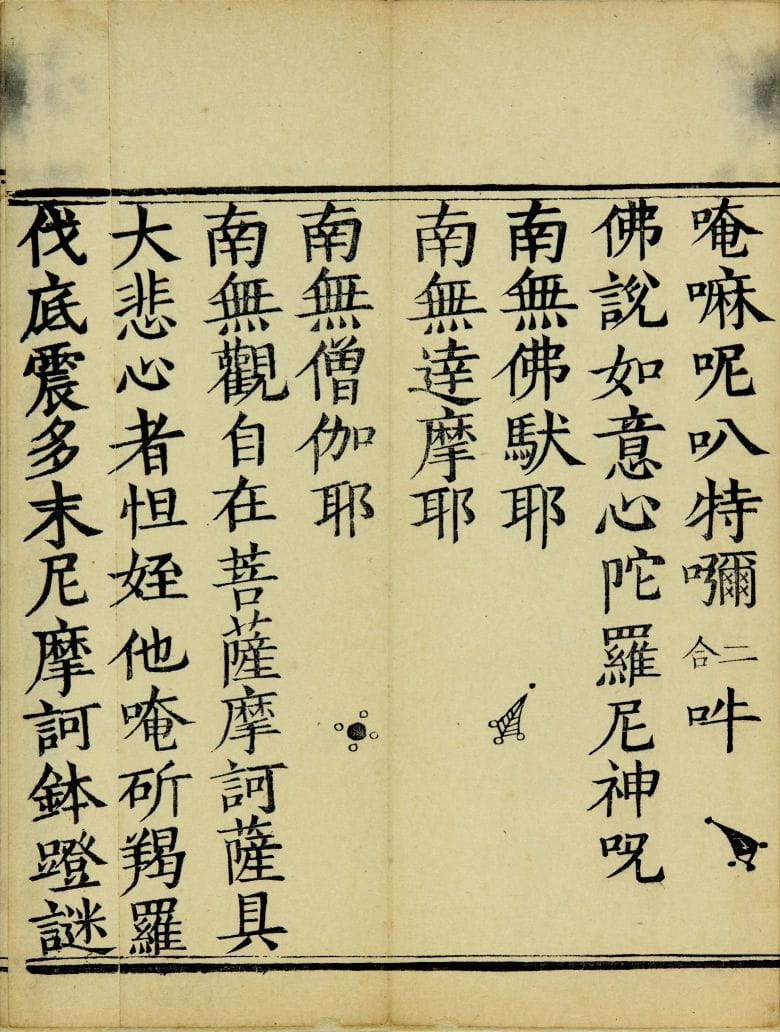 唵嘛呢叭特㘓二合吽
佛說如意心陀羅尼神呪
南無佛馱耶
南無達摩耶
南無僧伽耶
南無觀自在菩薩摩訶薩具
大悲心者怛姪他唵斫羯羅
伐底震多末尼摩訶鉢蹬謎